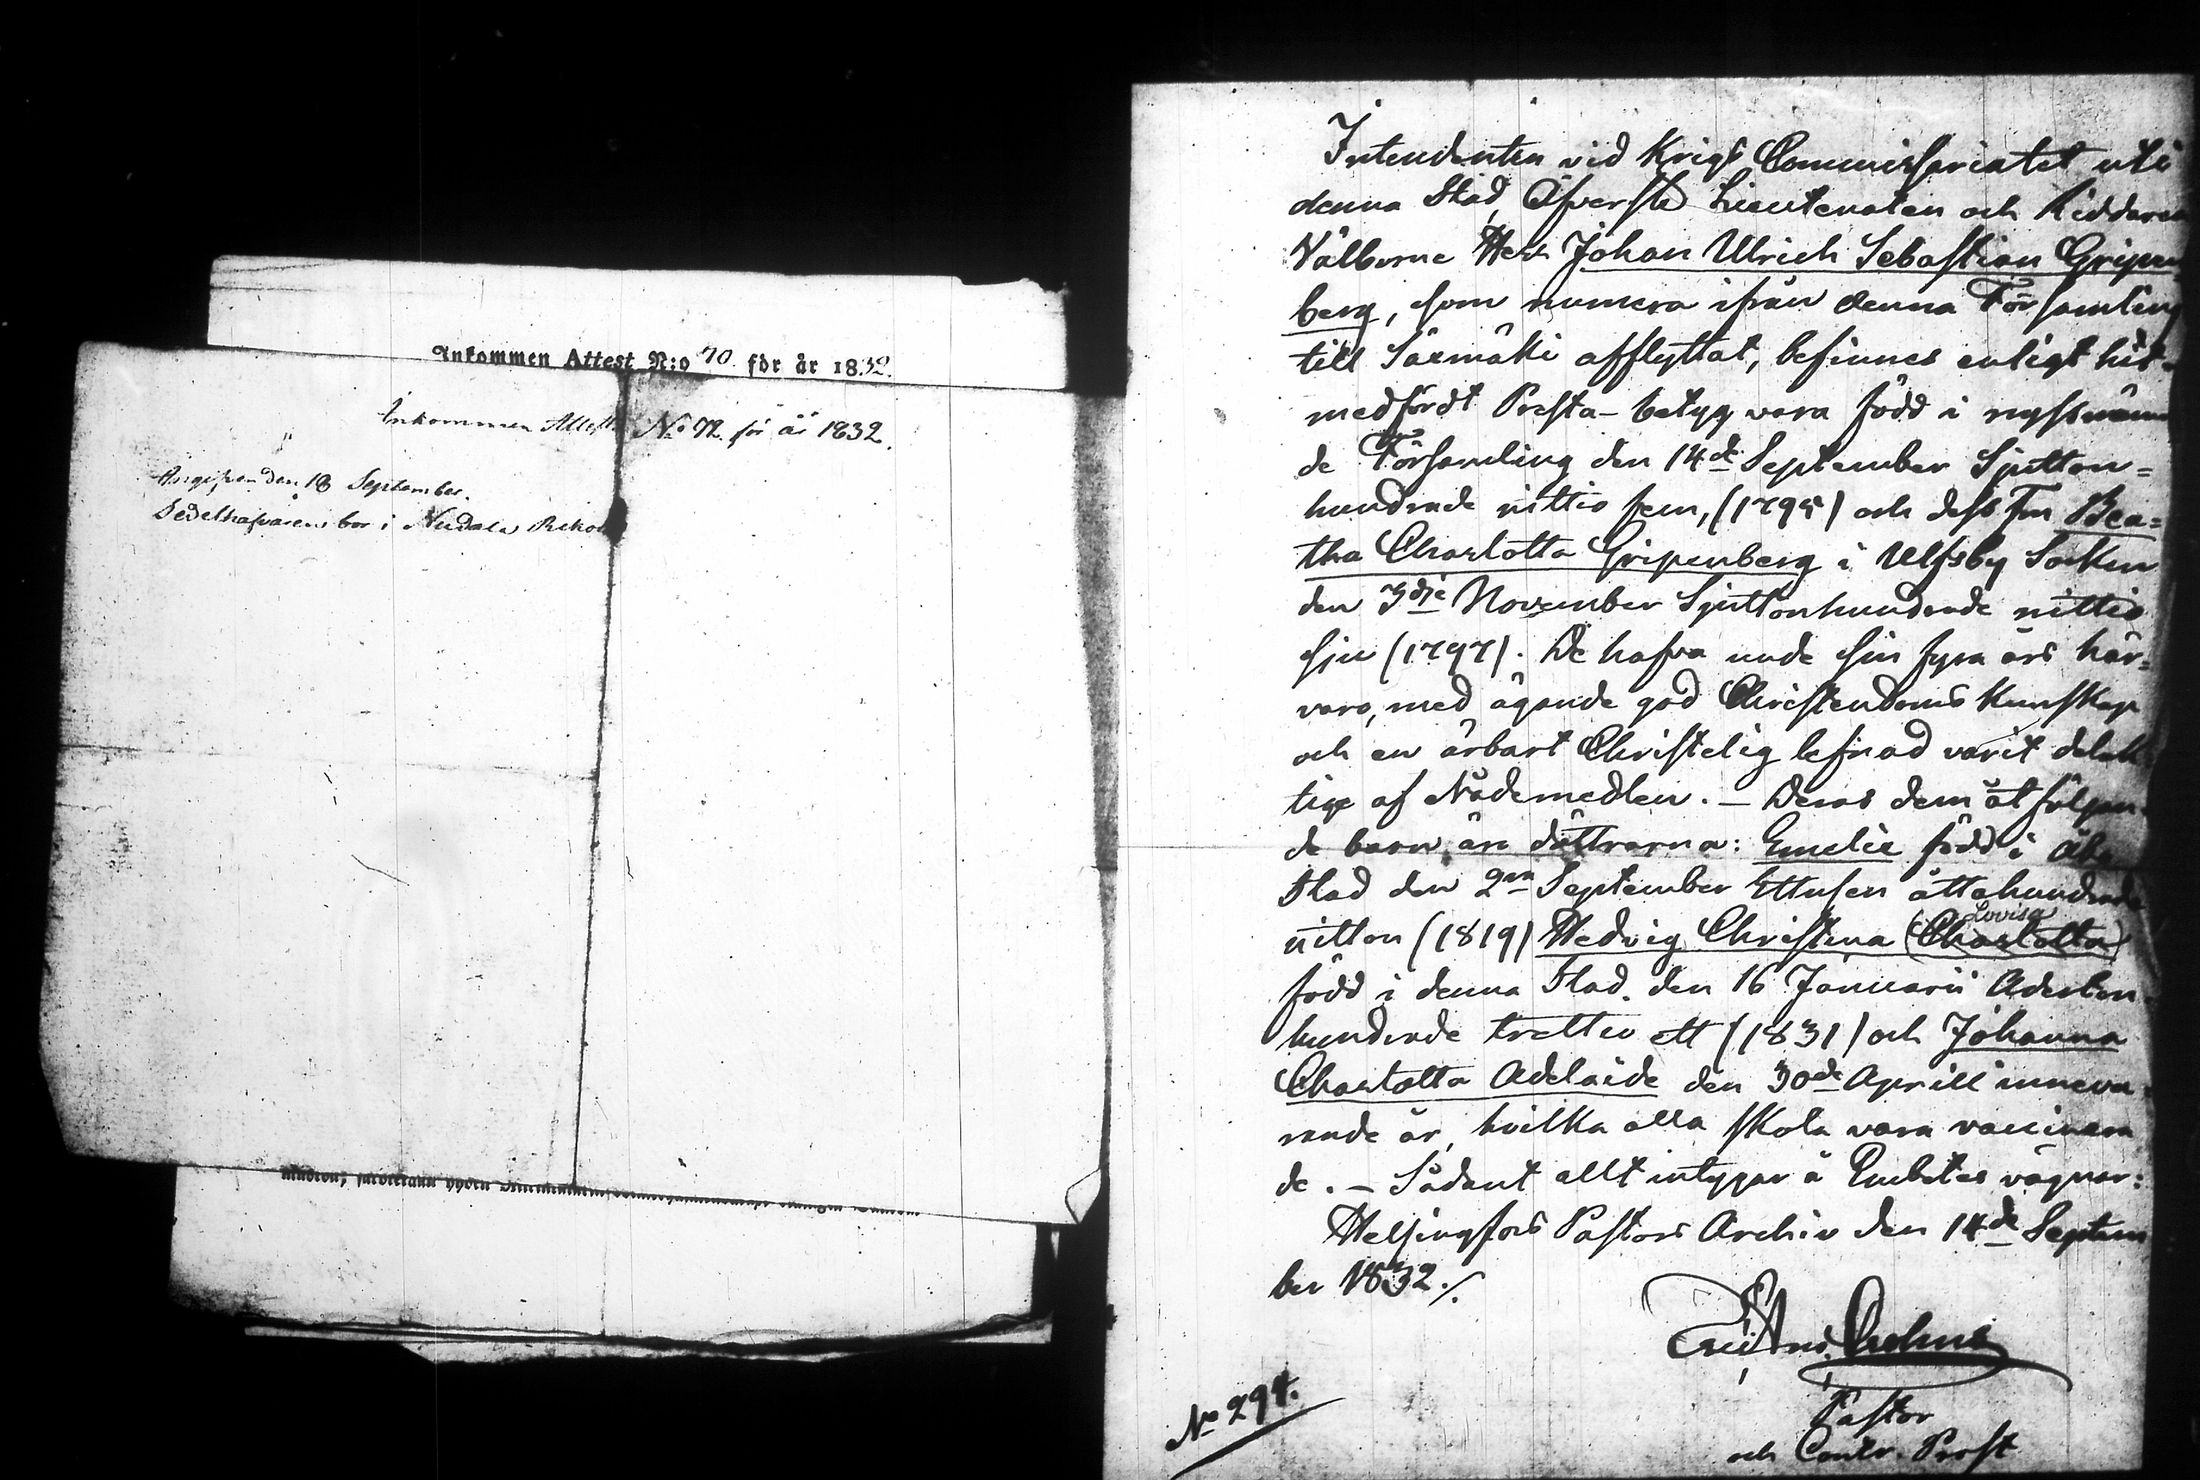 Inkommen Attest N:o 70. för år 1832.
Inkommen Attest No 72 för år 1832.
Angifven den 18 September.
Sedelhafvaren bor i
Intendenten vid Krigs Commissariatet uti
denna Stad, Öfverste Lieutenaten och Riddaren
Välborne Herr Johan Ulrich Sebastian Gripen
berg, som numera ifrån denna Församling
till Säxmäki afflyttat, befinnes enligt hit-
medfördt Presta-betyg vara född i nyssnämn
de Församling den 14de September Sjutton=
hundrade nittio fem, (1795) och dess Fru Bea=
tha Charlotta Gripenberg i Ulfsby Socken
den 3dje November Sjuttonhundrade nittio
sju (1797). De hafva unde sin fyra års här=
varo, med ägande god Christendoms Kunskap
och en ärbart Christelig lefnad varit delak
tige af Nådemedlen. — Deras dem åtföljan
de barn äro döttrarna: Emelie född i Åbo
Stad den 2en September Ettusen åttahundrade
nitton (1819) Hedvig Christina (Charlotta)
Lovisa
född i denna Stad. den 16 Januarii Aderton
hundrade trettio ett (1831) och Johanna
Charlotta Adelaide den 30de Aprill inneva=
rande år, hvilka alla skola vara vaccinera
de. — Sådant allt intygar å Embetes vägnar:
Helsingfors Pastors Archiv den 14de Septem
ber 1832./.
Pastor
och Contr. Prost
No 294.